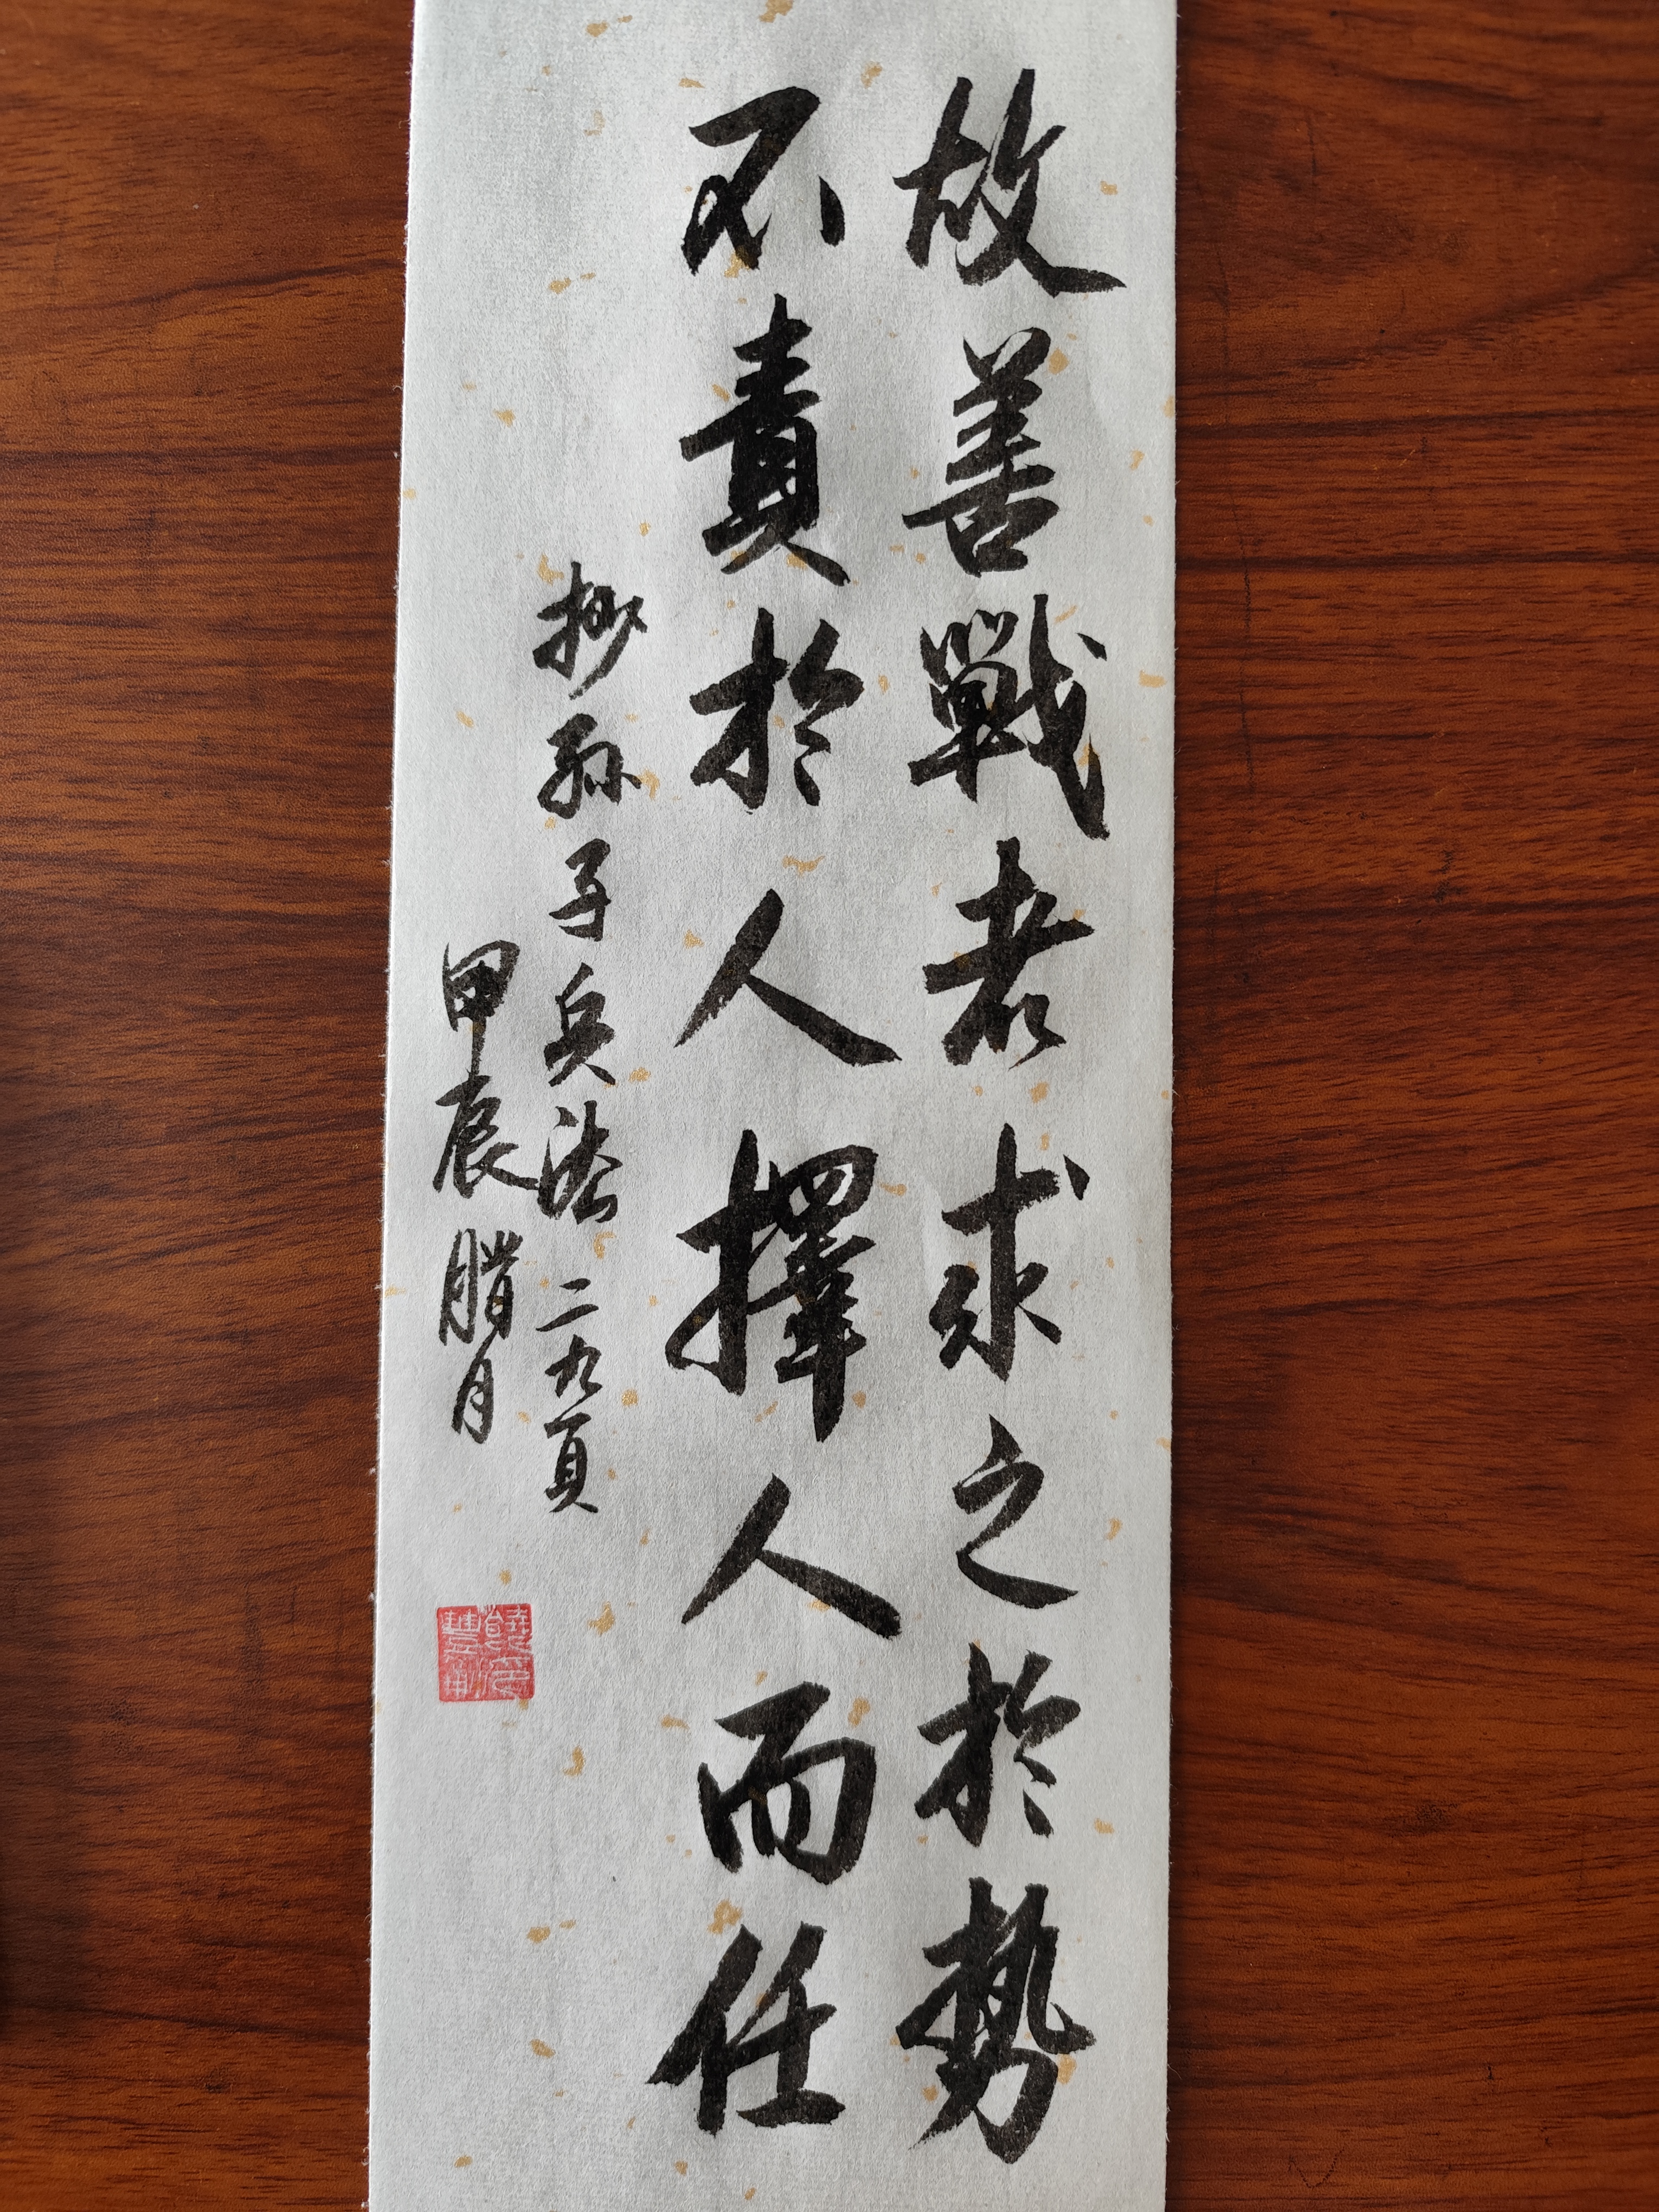 故善戰者求之於勢
不責於人擇人而任
抄孫子兵法二九頁
甲辰腊月